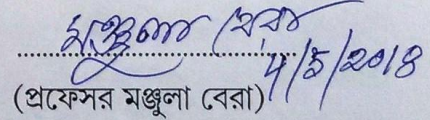 মঞ্জুলা বেরা
4/5/2018
(প্রফেসর মঞ্জুলা বেরা)